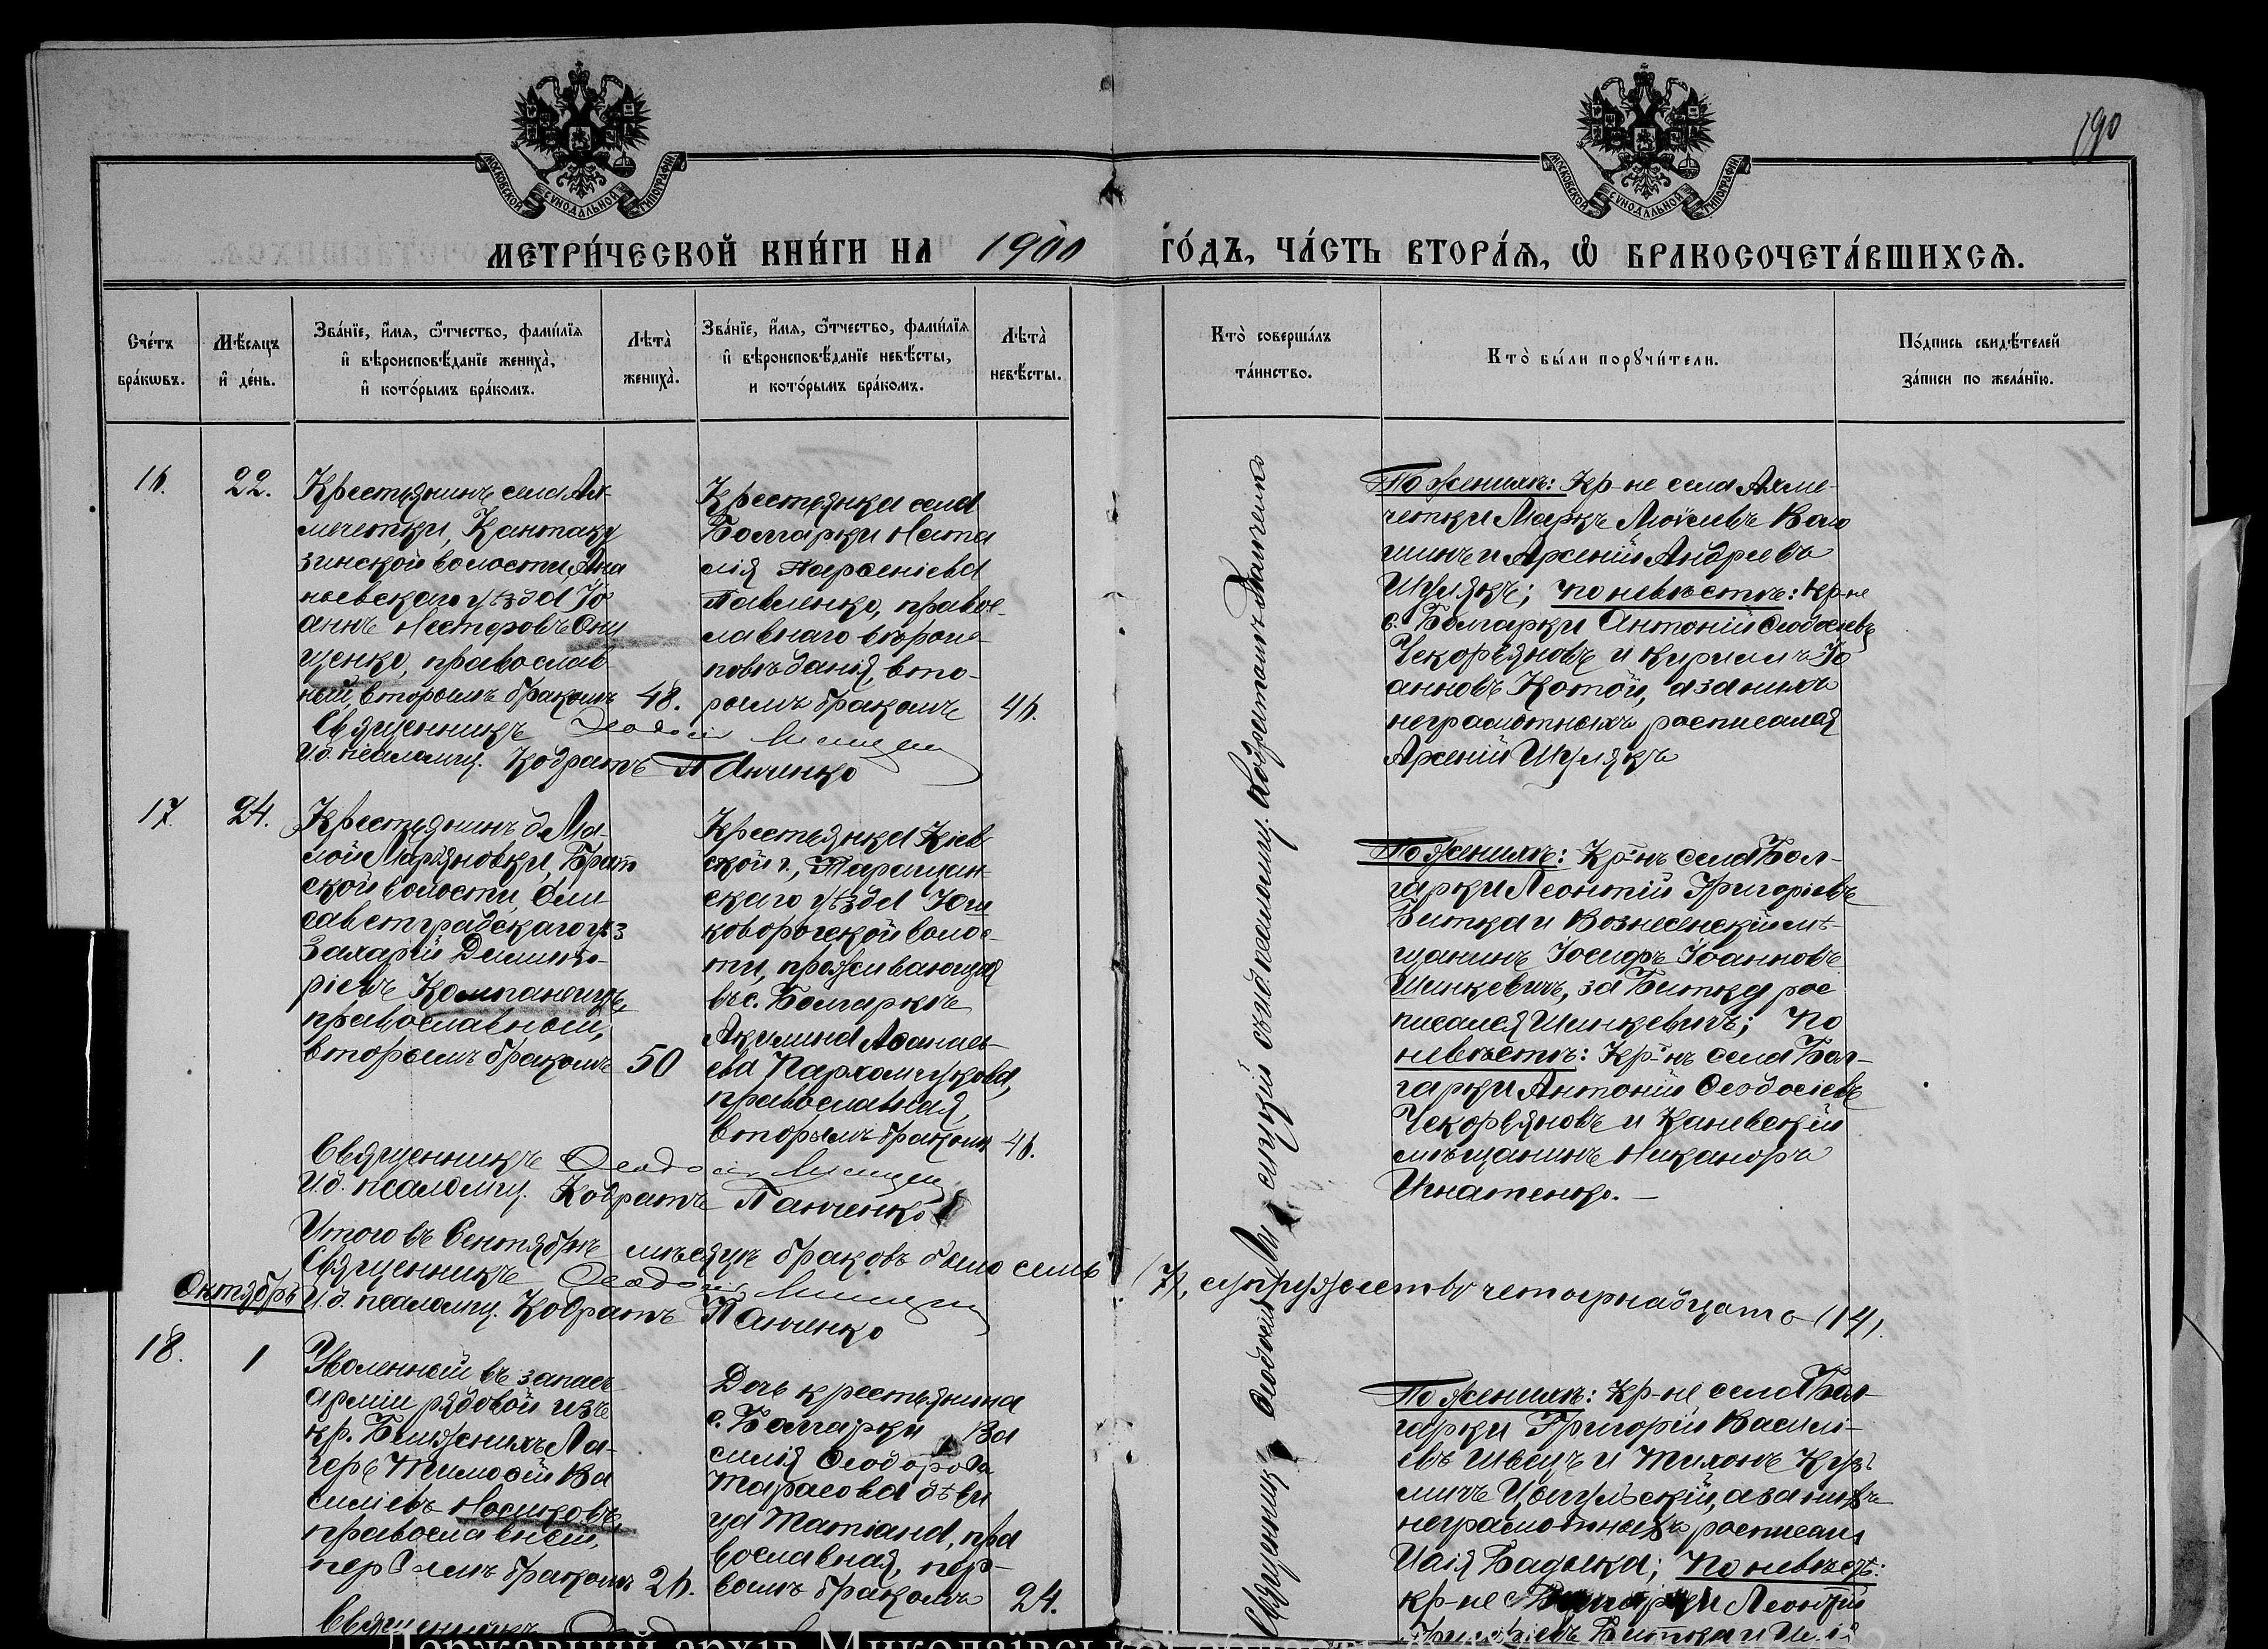 190
МОСКОВСКОЙ СУНОДАЛЬНОЙ ТИПОГРАФІИ
МОСКОВСКОЙ СУНОДАЛЬНОЙ ТИПОГРАФІИ
МЕТРИ́ЧЕСКОЙ КНИ́ГИ НА 1900 ГО́ДЪ, ЧА́СТЬ ВТОРА́Ѧ, Ѡ҆ БРАКОСОЧЕТА́ВШИХСѦ.
Сче́тъ
бра́кѡвъ.
Мѣ́сяцъ
и҆ де́нь.
Зва́нїе, и҆́мя, ѻ҆́тчество, фамѝлїя
и҆ вѣроисповѣ́данїе жениха̀,
и҆ кото́рымъ бра́комъ.
Лѣта̀
жениха̀.
Зва́нїе, и҆́мя, ѻ҆́тчество, фамѝлїя
и҆ вѣроисповѣ́данїе невѣ́сты,
и кото́рымъ бра́комъ.
Лѣта̀
невѣ́сты.
Кто̀ соверша́лъ
та́инство.
Кто̀ бы́ли порꙋчи́тели.
По́дпись свидѣ́телей
за́писи по жела́нїю.
16.
22.
Крестьянинъ села Ак-
мечетки, Кантаку
зинской волости Ана
ньевскаго уѣзда Іо
аннъ Несторовъ Они
щенко, православ
ный, вторымъ бракомъ
48.
Крестьянка села
Болгарки Ната
лія Парѳеніева
Павленко, правос-
лавнаго вѣроис-
повѣданія, вто-
рымъ бракомъ
46.
Священникъ Ѳеодосій
И.д. псаломщ. Кодратъ Панченко
По женихѣ: Кр-не села Акме-
четки Маркъ Моѵсеевъ
и Арсеній Андреевъ
Шулякъ; по невѣстѣ: кр-не
с. Болгарки Антоній Ѳеодосіевъ
Чекорьяновъ и Кириллъ Іо
анновъ Котой, а за нихъ
неграмотныхъ росписался
Арсеній Шулякъ
17.
24.
Крестьянинъ д. Ма-
лой Марьяновки, Брат
ской волости, Ели
саветградскаго уѣз
Захарій Димитр-
ріевъ Компанеецъ,
православный,
вторымъ бракомъ
50
Крестьянка Кіев
ской г., Таращан-
скаго уѣзда Юш
коворогской волос-
ти, проживающая
въ с. Болгаркѣ
Акилина Аѳанась-
ева Пархомчукова,
православная,
вторымъ бракомъ
46.
Священникъ Ѳеодосій
И.д. псаломщ. Кодратъ Панченко
По женихѣ: Кр-нъ села Бол-
гарки Леонтій Григоріевъ
Битка и Вознесенскій мѣ-
щанинъ Іосифъ Іоанновъ
Шинкевичъ, за Битку рос
писался Шинкевичъ; по
невѣстѣ: Кр-нъ села Бол-
гарки Антоній Ѳеодосіевъ
Чекорьяновъ и Каневскій
мѣщанинъ Никаноръ
Игнатенко. —
Итого въ Сентябрѣ мѣсяцѣ браковъ было семь (7), супружествъ четырнадцать (14).
Священникъ Ѳеодосій
И.д. псаломщ. Кодратъ Панченко
Октябрь
18.
1
Уволенный въ запасъ
арміи рядовой изъ
кр. Ближнихъ Ла-
герь Тимоѳей Ва
силіевъ Носиковъ,
православный,
первымъ бракомъ
26.
Дочь крестьянина
с. Болгарки Ва
силія Ѳеодорова
Тарасова дѣви
ца Татіана, пра
вославная, пер-
вымъ бракомъ
24.
По женихѣ: Кр-не села Бол-
гарки Григорій Василі-
евъ Швецъ и Тихонъ Кузь
мичъ а за нихъ
неграмотныхъ росписался
Илія Бадыка; по невѣстѣ:
кр-не с. Болгарки Леонтій
Григоріевъ Битка и
Священникъ
Священникъ Ѳеодосій псаломщ. Кодратъ Панченко
Державний архів Миколаївської